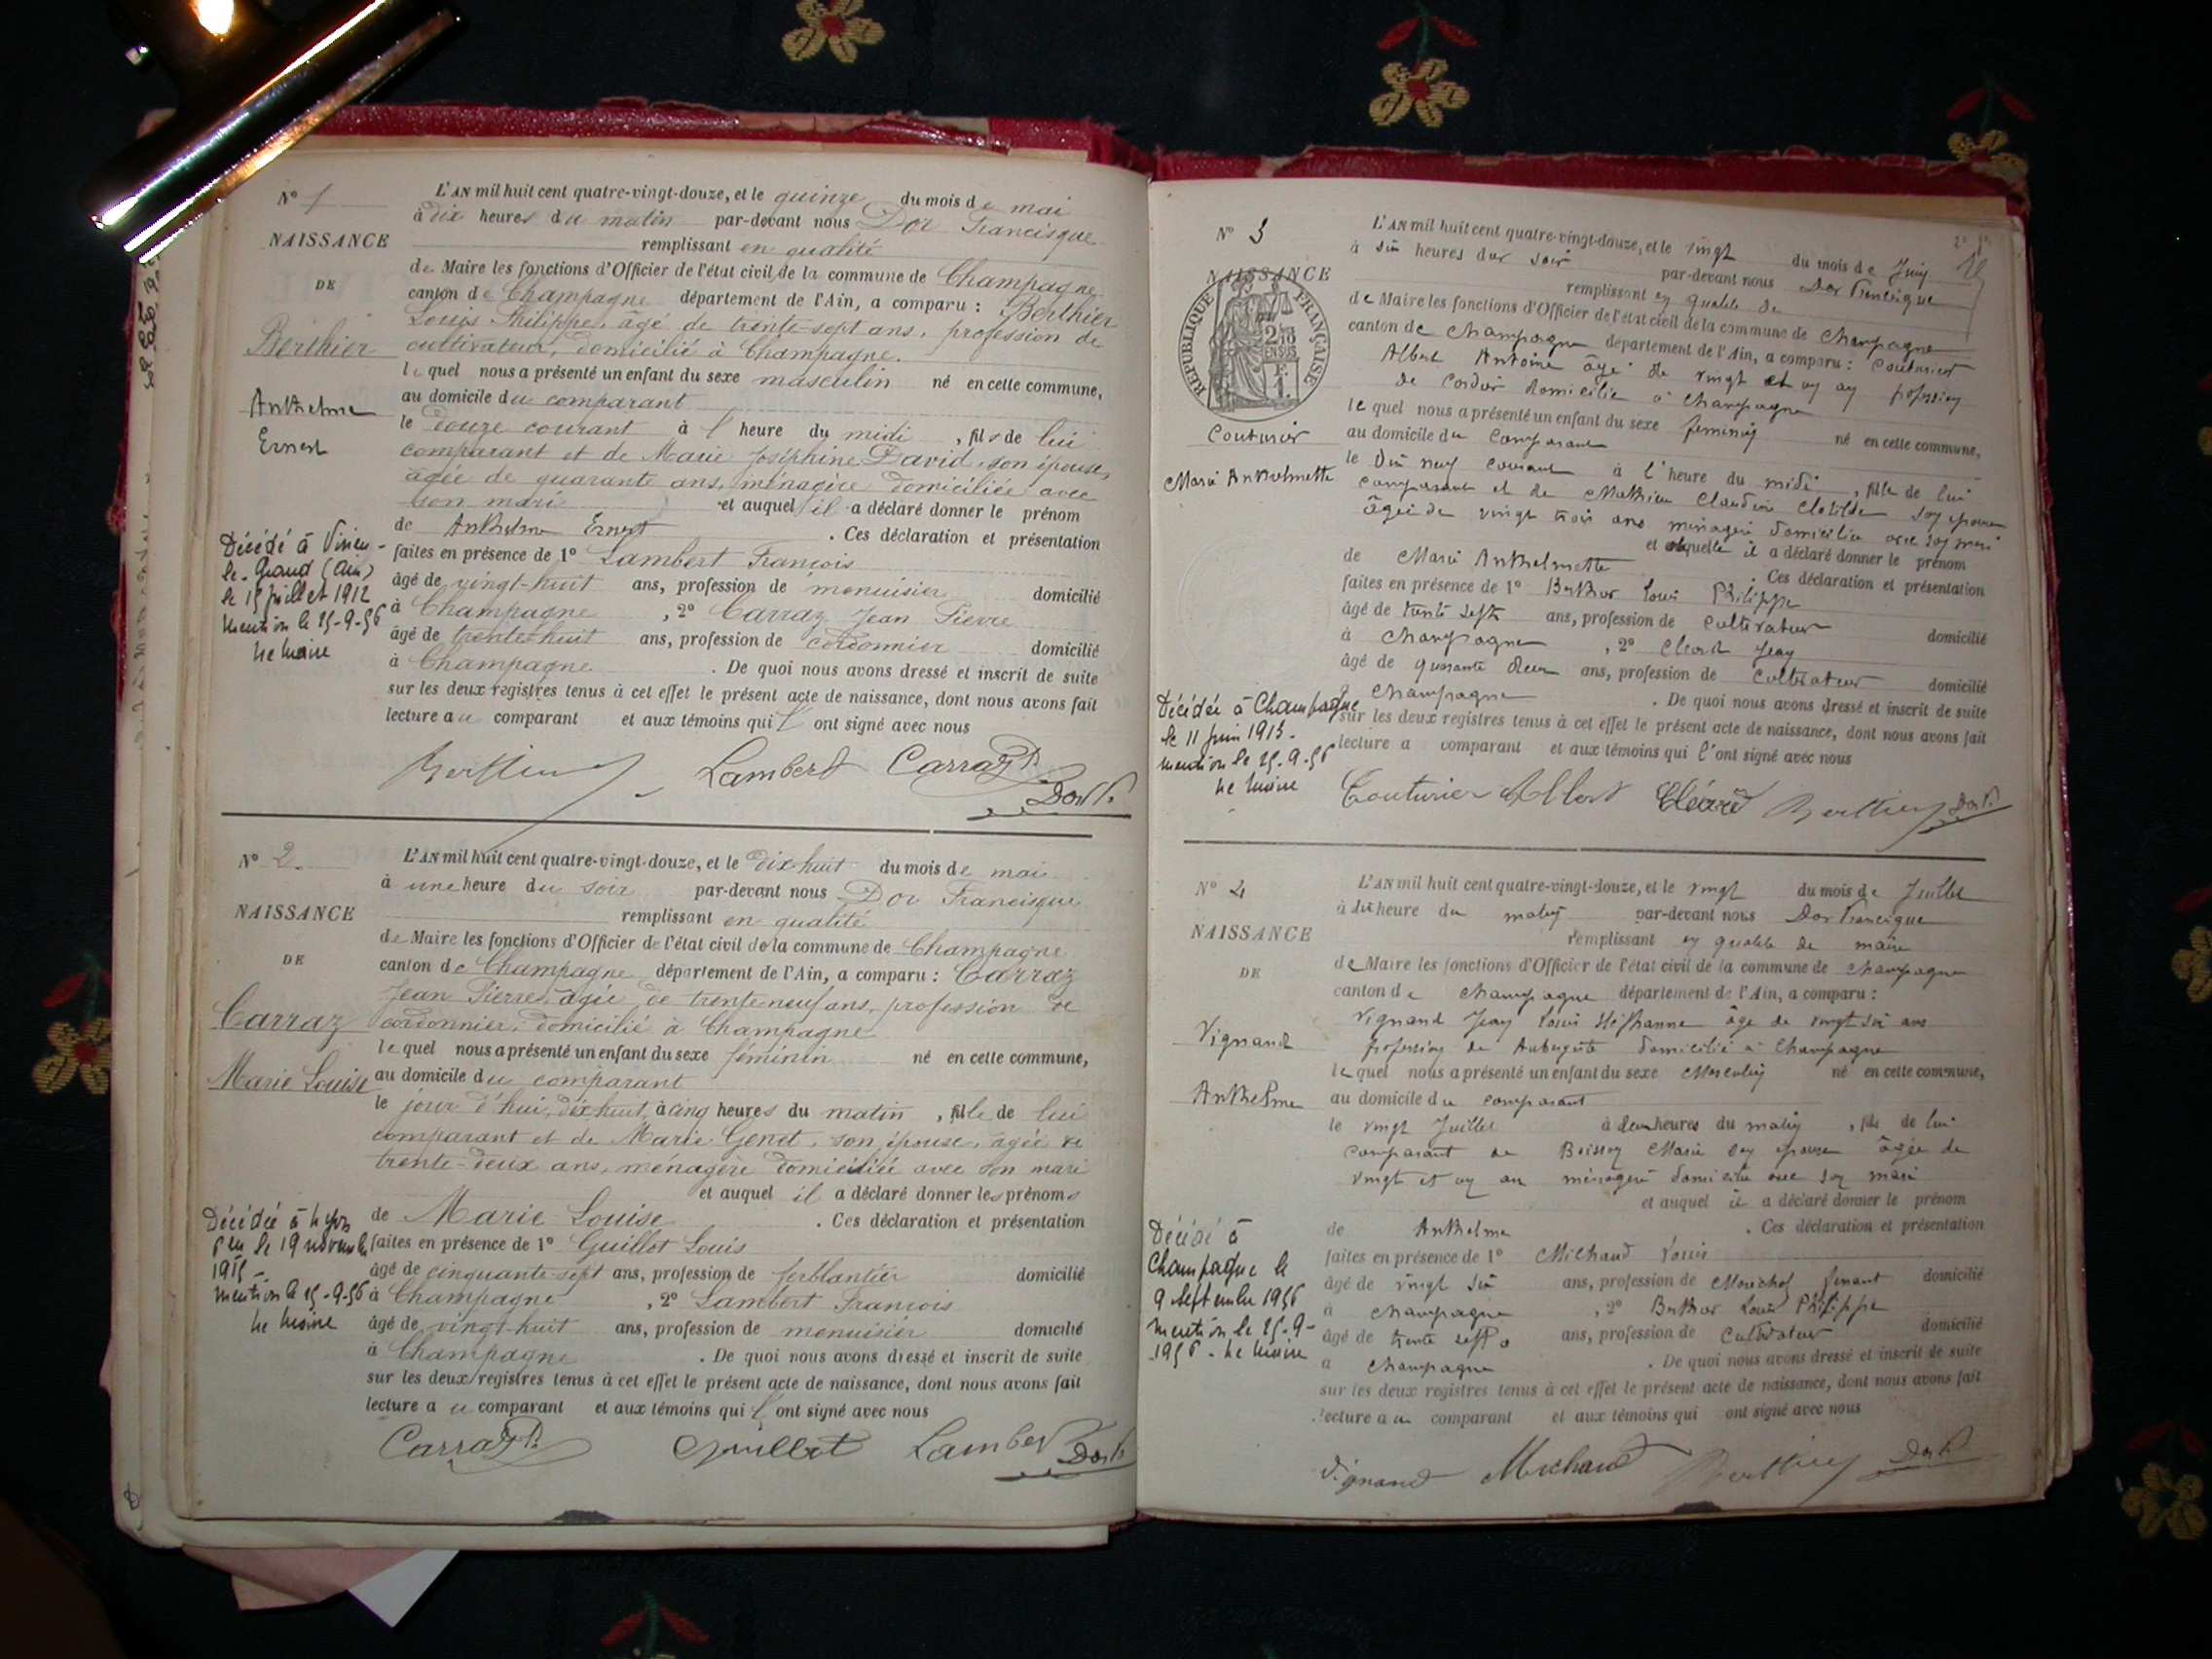 N° 1
NAISSANCE
DE
Berthier
Anthelme
Ernest
L'AN mil huit cent quatre-vingt-douze, et le quinze du mois de mai
à dix heures du matin par-devant nous Dor Francisque
remplissant en qualité
de Maire les fonctions d'Officier de l'état civil de la commune de Champagne
canton de Champagne département de l'Ain, a comparu : Berthier
Louis Philippe, âgé de trente-sept ans, profession de
cultivateur, domicilié à Champagne.
lequel nous a présenté un enfant du sexe masculin né en cette commune,
au domicile du comparant
le douze courant à l heure du midi , fils de lui
comparant et de Marie Joséphine David, son épouse,
âgée de quarante ans, ménagère domiciliée avec
son mari et auquel il a déclaré donner le prénom
de Anthelme Ernest . Ces déclaration et présentation
faites en présence de 1° Lambert François
âgé de vingt-huit ans, profession de menuisier domicilié
à Champagne , 2° Carraz Jean Pierre
âgé de trente-huit ans, profession de cordonnier domicilié
à Champagne . De quoi nous avons dressé et inscrit de suite
sur les deux registres tenus à cet effet le présent acte de naissance, dont nous avons fait
lecture au comparant et aux témoins qui l'ont signé avec nous
Décédé à Virieu-
le-Grand (Ain)
le 15 juillet 1912
Mention le 25-9-56
Le Maire
Berthier Lambert Carraz P.
Dor F.
N° 2.
NAISSANCE
DE
Carraz
Marie Louise
L'AN mil huit cent quatre-vingt-douze, et le dix-huit du mois de mai
à une heure du soir par-devant nous Dor Francisque
remplissant en qualité
de Maire les fonctions d'Officier de l'état civil de la commune de Champagne
canton de Champagne département de l'Ain, a comparu : Carraz
Jean Pierre, âgée de trente-neuf ans, profession de
cordonnier, domicilié à Champagne
lequel nous a présenté un enfant du sexe féminin né en cette commune,
au domicile du comparant
le jour d'hui, dix huit, à cinq heures du matin , fille de lui
comparant et de Marie Genet, son épouse, âgée de
trente-deux ans, ménagère domiciliée avec son mari
et auquel il a déclaré donner les prénoms
de Marie Louise . Ces déclaration et présentation
faites en présence de 1° Guillot Louis
âgé de cinquante-sept ans, profession de ferblantier domicilié
à Champagne , 2° Lambert François
âgé de vingt-huit ans, profession de menuisier domicilié
à Champagne . De quoi nous avons dressé et inscrit de suite
sur les deux registres tenus à cet effet le présent acte de naissance, dont nous avons fait
lecture au comparant et aux témoins qui l'ont signé avec nous
Décédée à Lyon
le 19 novembre
mention le 25-9-56
Le Maire
Carraz P. Guillot Lambert Dor F.
N° 3
NAISSANCE
RÉPUBLIQUE FRANÇAISE
2/10
EN SUS
Couturier
Marie Anthelmette
L'AN mil huit cent quatre-vingt-douze, et le vingt du mois de Juin
à six heures du soir par-devant nous Dor Francisque
remplissant en qualité de
de Maire les fonctions d'Officier de l'état civil de la commune de Champagne
canton de Champagne département de l'Ain, a comparu : Couturier
Albert Antoine âgé de vingt et un an profession
de domicilié à Champagne
lequel nous a présenté un enfant du sexe féminin né en cette commune,
au domicile du comparant
le dix neuf courant à l'heure du midi , fille de lui
comparant et de Mathieu Claudine Clotilde son épouse
âgée de vingt trois ans ménagère domiciliée avec son mari
et laquelle il a déclaré donner le prénom
de Marie Anthelmette . Ces déclaration et présentation
faites en présence de 1° Berthier Louis Philippe
âgé de trente sept ans, profession de cultivateur domicilié
à Champagne , 2° Clerd Jean
âgé de quarante deux ans, profession de cultivateur domicilié
à Champagne . De quoi nous avons dressé et inscrit de suite
sur les deux registres tenus à cet effet le présent acte de naissance, dont nous avons fait
lecture a comparant et aux témoins qui l'ont signé avec nous
Décédée à Champagne
le 11 juin 1913.
mention le 25-9-56
Le Maire
Couturier Albert Berthier Dor F.
N° 4
NAISSANCE
DE
Vignand
Anthelme
L'AN mil huit cent quatre-vingt-douze, et le vingt du mois de Juillet
à dix heure du matin par-devant nous Dor Francisque
remplissant en qualité de maire
de Maire les fonctions d'Officier de l'état civil de la commune de Champagne
canton de Champagne département de l'Ain, a comparu :
Vignand Jean Louis Stéphanne âgé de vingt six ans
profession de Aubergiste domicilié à Champagne
lequel nous a présenté un enfant du sexe Masculin né en cette commune,
au domicile du comparant
le vingt Juillet à deux heures du matin , fils de lui
comparant de Boisson Marie son épouse âgée de
vingt et un an ménagère domiciliée avec son mari
et auquel il a déclaré donner le prénom
de Anthelme . Ces déclaration et présentation
faites en présence de 1° Michaud Louis
âgé de vingt six ans, profession de Maréchal ferrant domicilié
à Champagne , 2° Berthier Louis Philippe
âgé de trente sept ans, profession de cultivateur domicilié
à Champagne . De quoi nous avons dressé et inscrit de suite
sur les deux registres tenus à cet effet le présent acte de naissance, dont nous avons fait
lecture au comparant et aux témoins qui ont signé avec nous
Décédé à
Champagne le
9 septembre 1956
mention le 25-9-
1956 - Le Maire
Vignand Michaud Berthier Dor F.